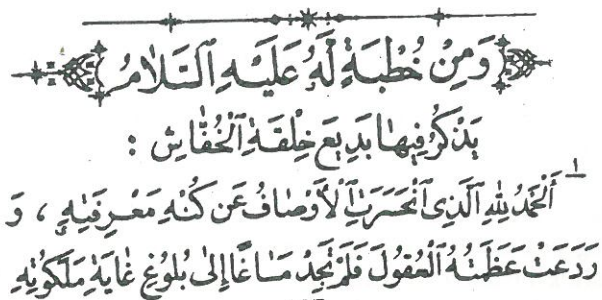 وَمِنْ خُطْبَةٍ لَهُ عَلَيْهِ السَّلَامُ
يَذْكُرُ فِيهَا بَدِيعَ خِلْقَةِ الْخُفَّاشِ :
١ أَلْحَمْدُ لِلَّهِ الَّذِي انْحَسَرَتِ الْأَوْصَافُ عَنْ كُنْهِ مَعْرِفَتِهِ ، وَ
رَدَعَتْ عَظَمَتُهُ الْعُقُولَ فَلَمْ تَجِدْ مَسَاغًا إِلَى بُلُوغِ غَايَةِ مَلَكُوتِهِ